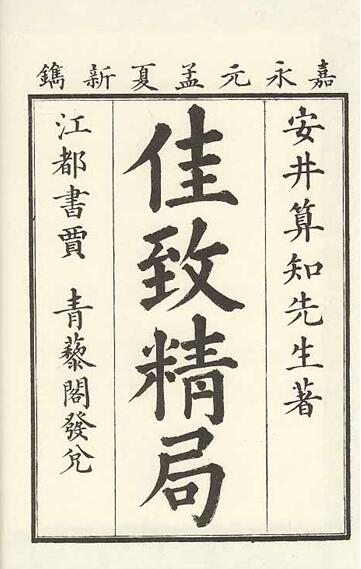 嘉永元孟夏新鐫
安井算知先生著
佳致精局
江都書賈 青藜閣發兌